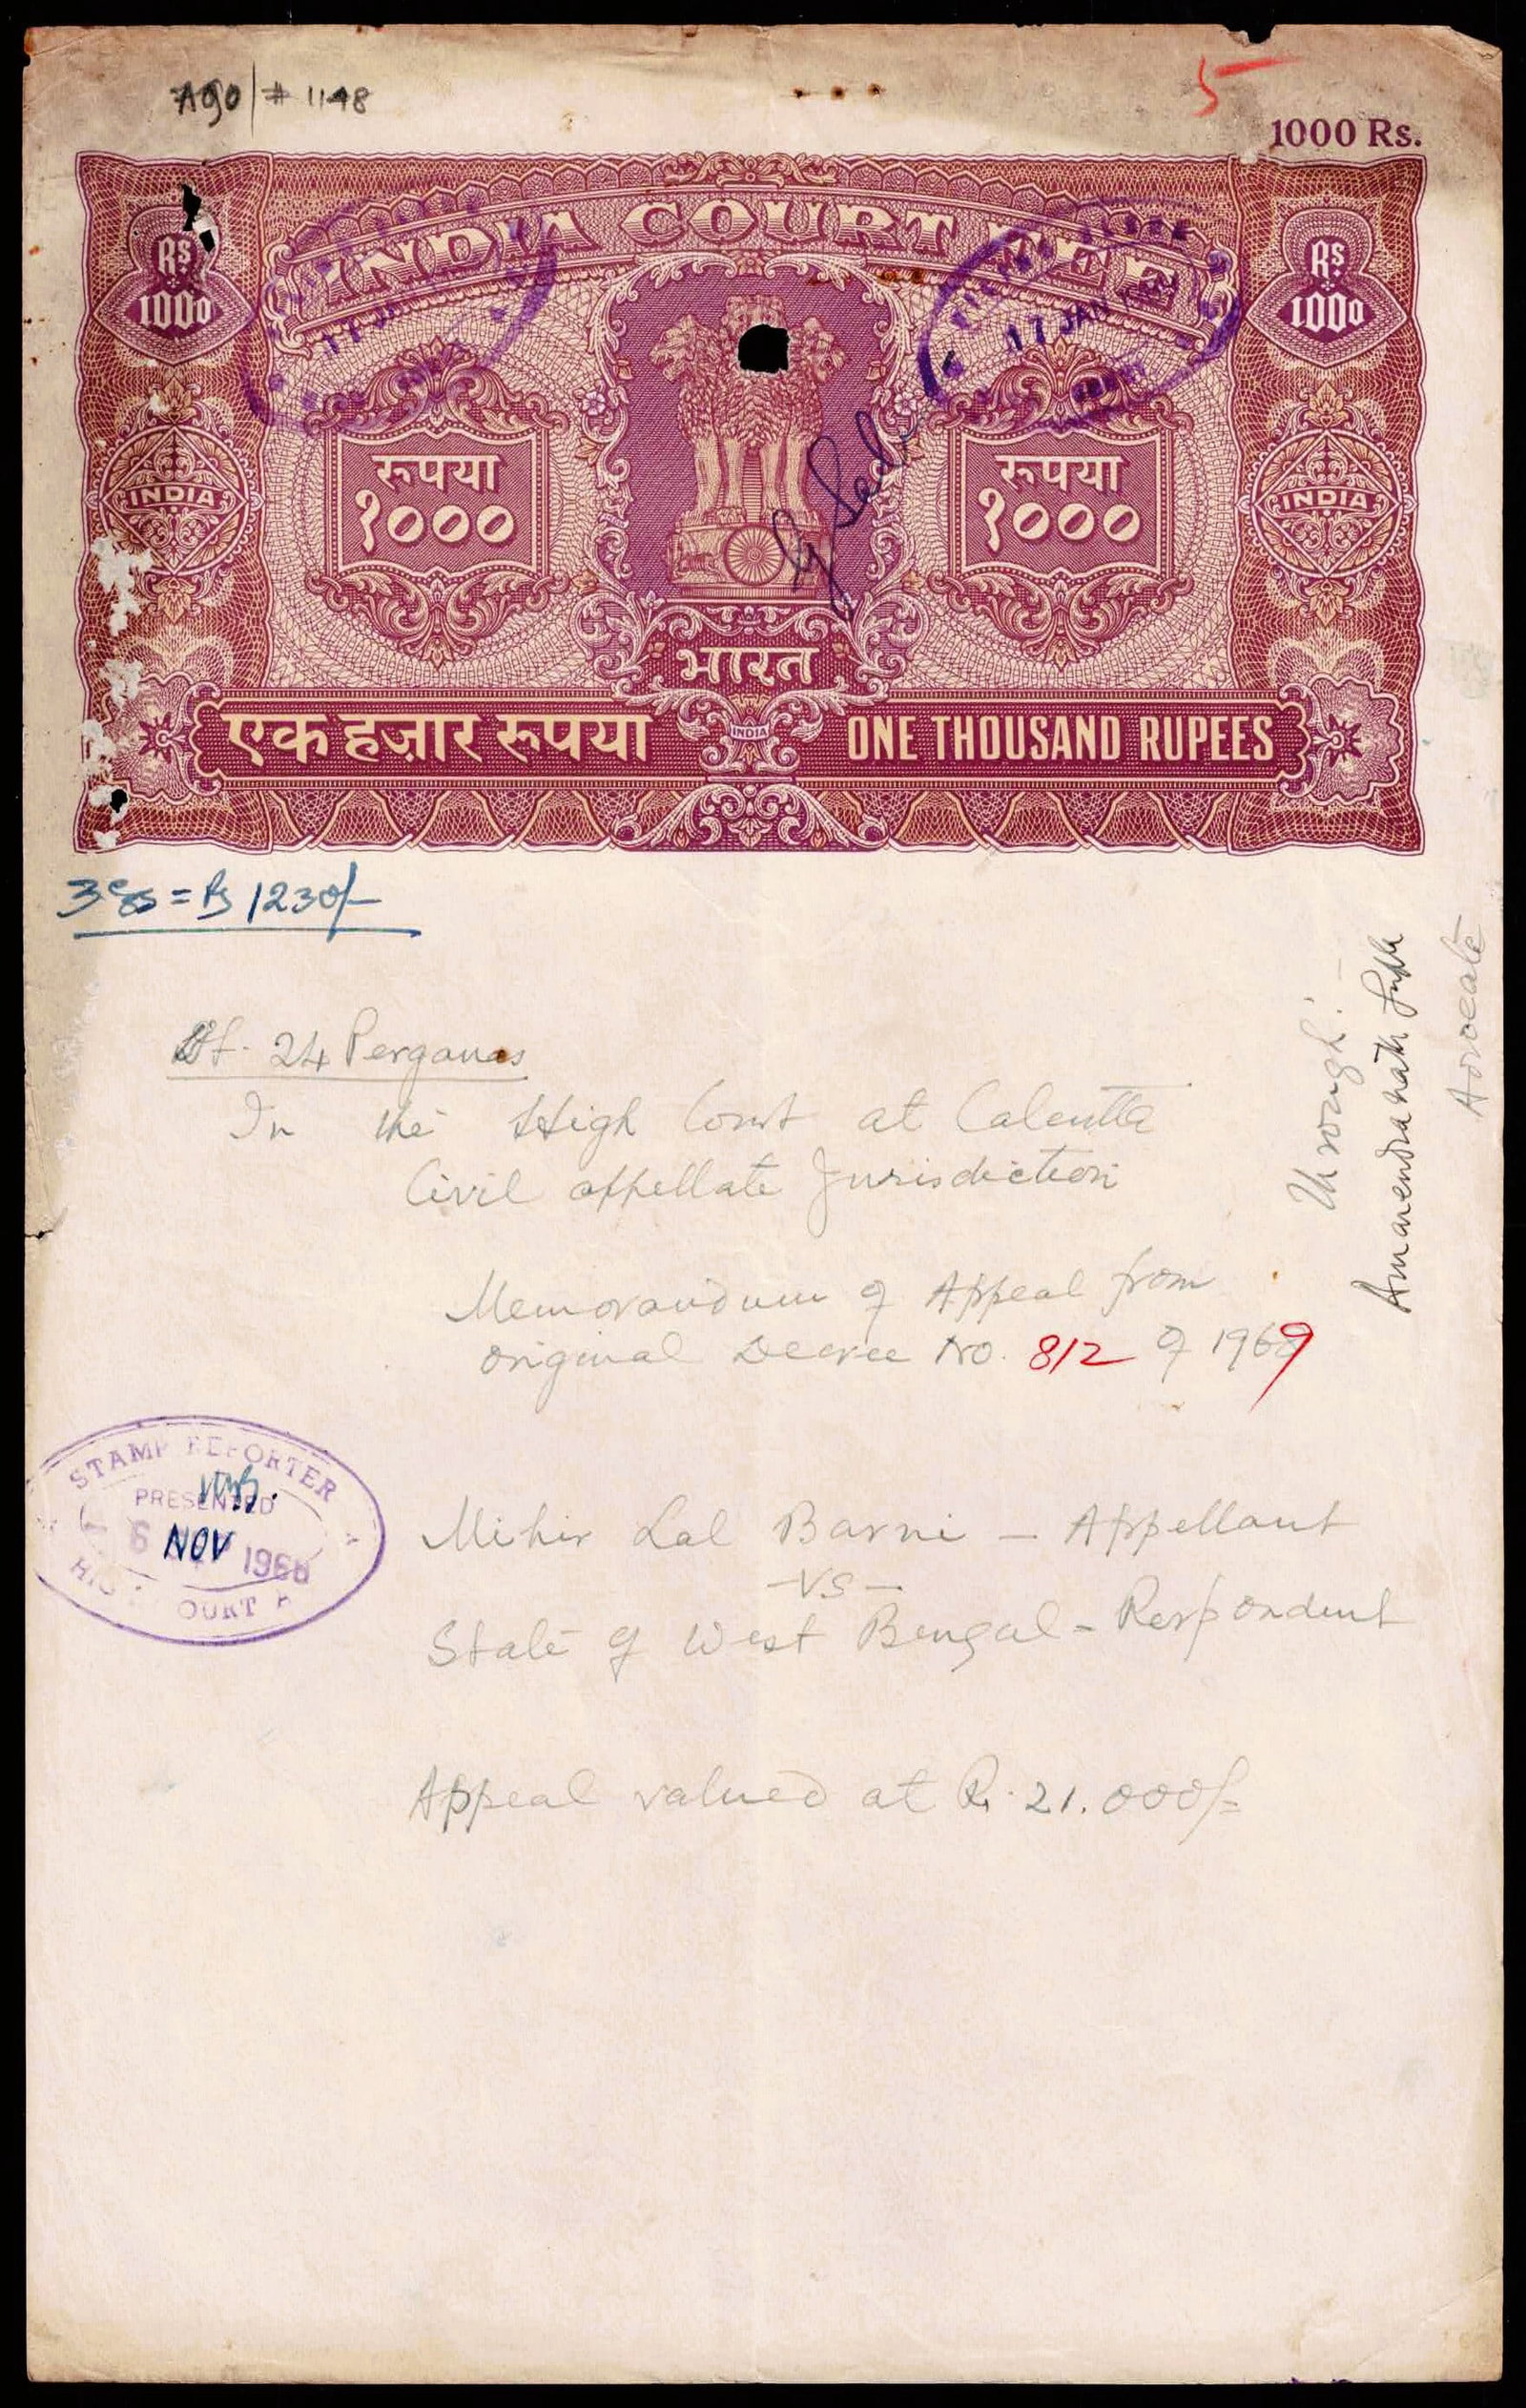 A90 / # 1148
5
1000 Rs.
INDIA COURT FEE
Rs 1000
Rs 1000
17 JAN
17 JAN
रुपया
१०००
रुपया
१०००
INDIA
INDIA
भारत
एक हज़ार रुपया
INDIA
ONE THOUSAND RUPEES
= Rs 1230/-
Dt. 24 Perganas
In the High Court at Calcutta
Civil appellate Jurisdiction
Memorandum of Appeal from
original Decree No. 812 of 1969
STAMP REPORTER
PRESENTED
6 NOV 1968
HIGH COURT
Mihir Lal Barni - Appellant
- VS -
State of West Bengal - Respondent
Appeal valued at Rs. 21.000/-
Through: -
Amarendranath Gupta
Advocate